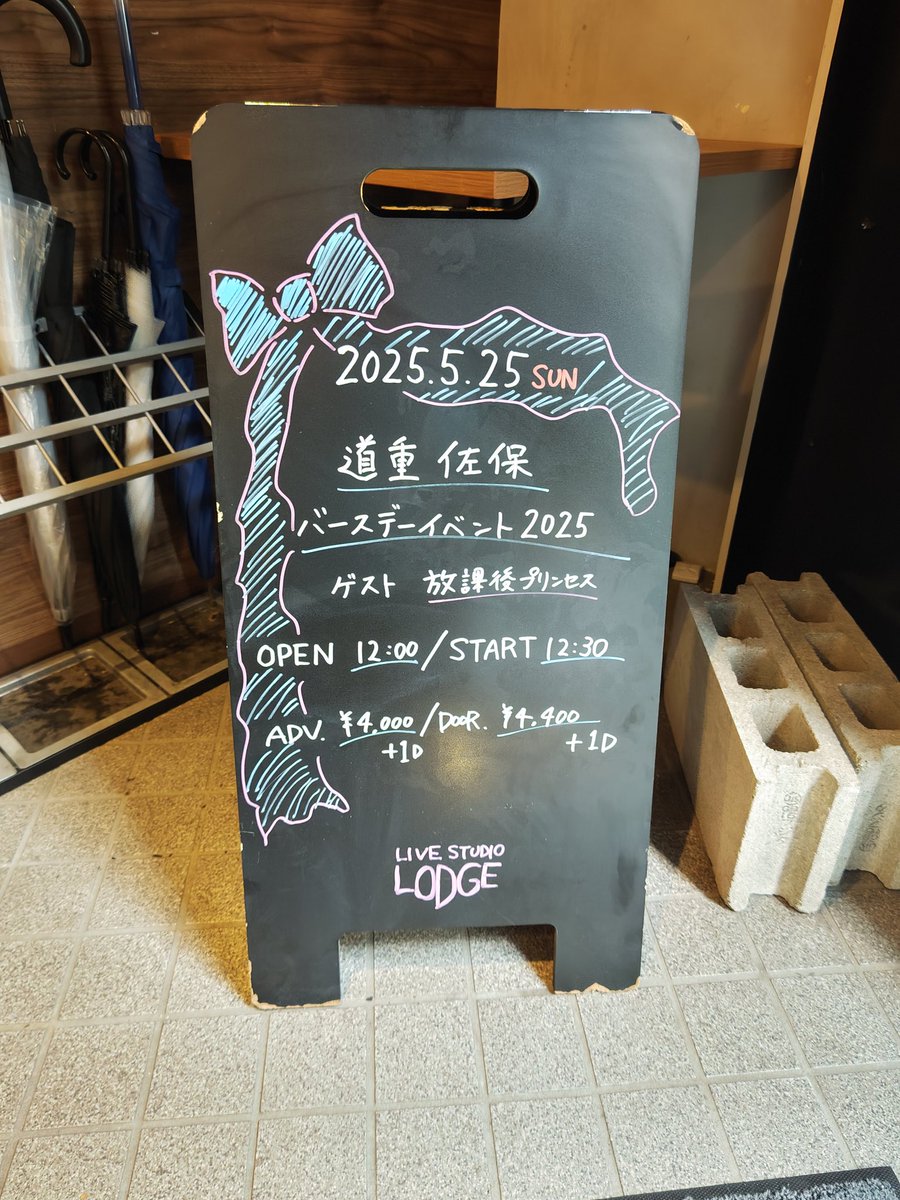 2025.5.25 SUN
道重 佐保
バースデーイベント 2025
ゲスト 放課後プリンセス
OPEN 12:00 / START 12:30
ADV. ¥4,000 / DOOR. ¥4,400
+1D +1D
LIVE STUDIO
LODGE